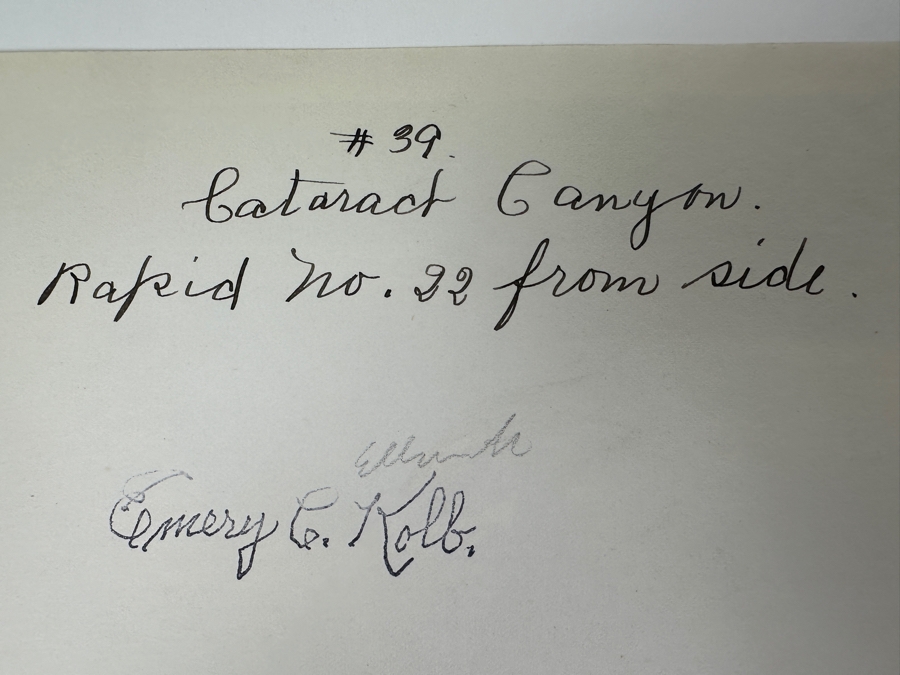 # 39.
Cataract Canyon.
Rapid No. 22 from side.
Emery C. Kolb.